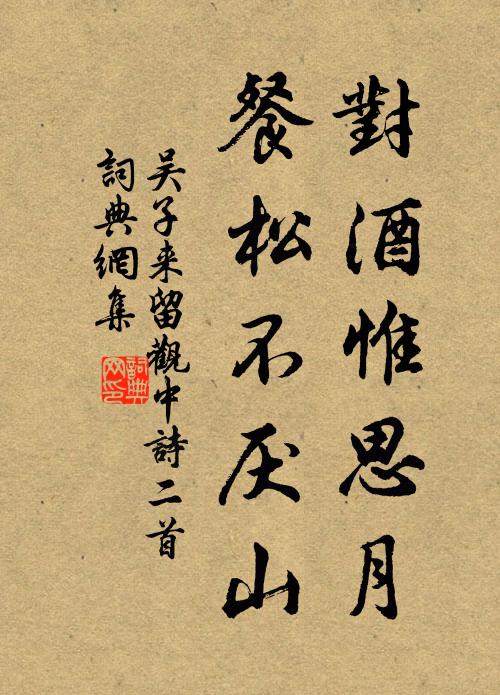 對酒惟思月
餐松不厌山
吴子来留觀中詩二首
詞典網集
詞典网印